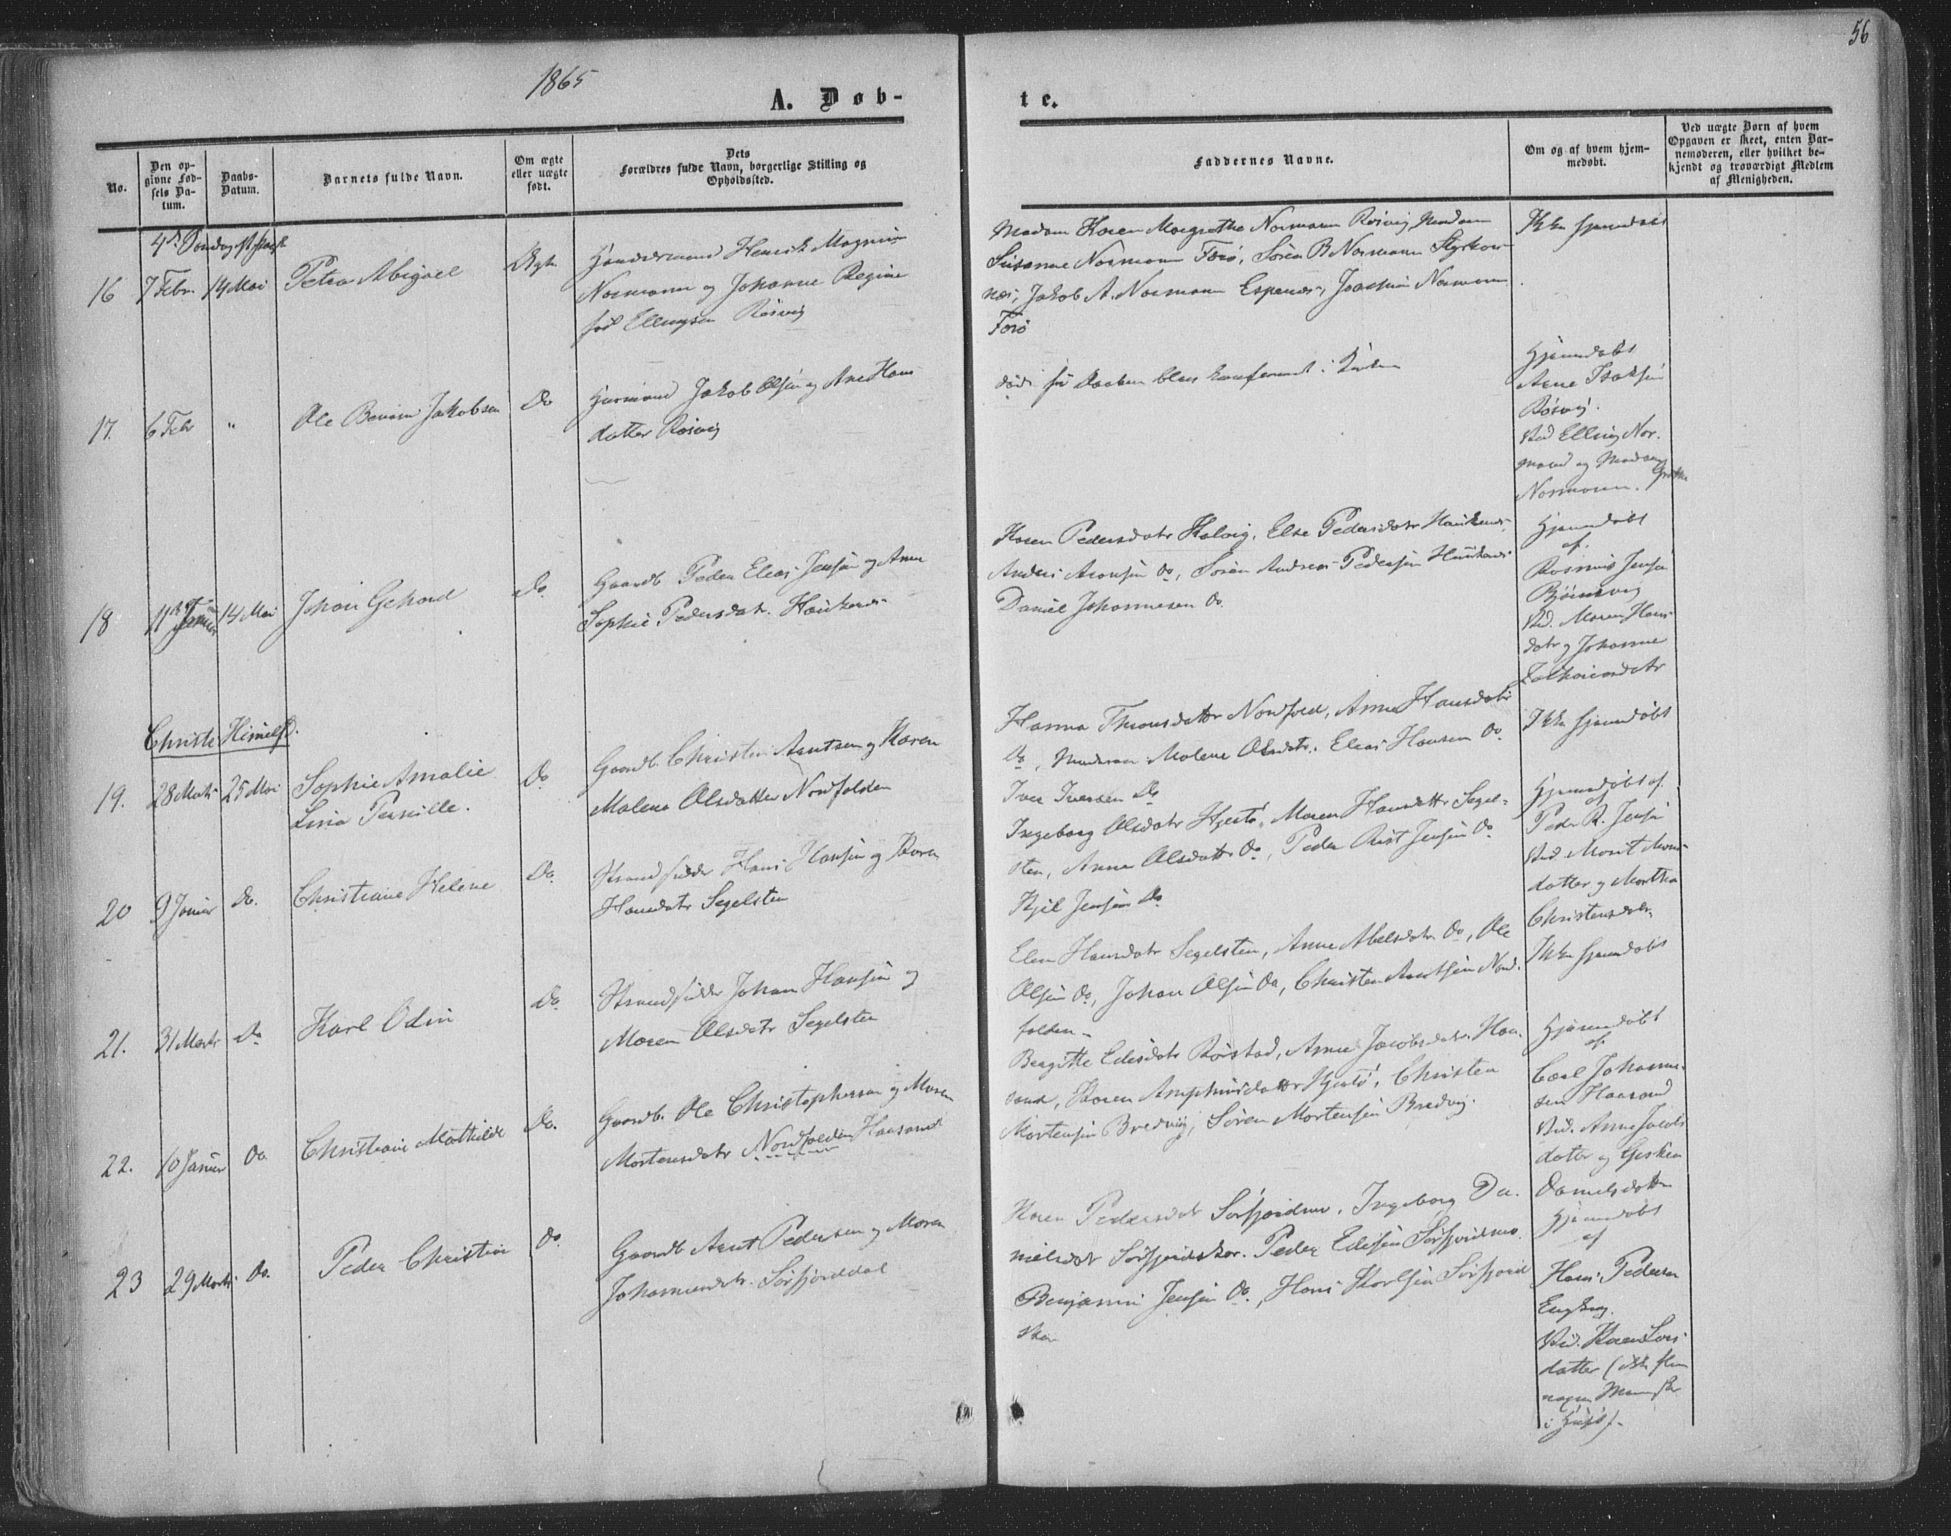 56
1865
A. Døb-
te.
No.
Den op-
givne Fød-
sels Da-
tum.
Daabs-
Datum.
Barnets fulde Navn.
Om ægte
eller uægte
født.
Dets
Forældres fulde Navn, borgerlige Stilling og
Opholdssted.
Faddernes Navne.
Om og af hvem hjem-
medøbt.
Ved uægte Børn af hvem
Opgaven er skeet, enten Bar-
nemoderen, eller hvilket be-
kjendt og troværdigt Medlem
af Menigheden.
16
7 Febr
14 Mai
Petra Abigael
Ægte
Henrik Magnus
Normann og Johanne Regine
fød Ellingsen Røsvig
Madam Karen Margrethe Normann Røsvig, Madam
Susanne Normann Førø, Søren B Normann Styrkes-
næs, Jakob A. Normann Espenæs, Joachim Normann
Førø
Ikke hjemmedøbt
17.
6 Febr
"
Ole Jakobsen
Do
Huusmand Jakob Olsen og Ane Hans
datter Røsvig
død før Daaben blev konfirmeret i Kirken
Hjemmedøbt
Arne Isaksen
Røsvig.
Ved Elling Nor-
mand og Madam
Normann.
18
11te Januar
14 Mai
Johan Gehard
Do.
Gaardb. Peder Elias Jensen og Anne
Sophie Pedersdatr. Haukenes
Karen Pedersdatr Kalvig, Else Pedersdatr Haukenes
Anders Aronsen Do, Søren Andreas Pedersen Haukenes
Daniel Johannesen Do.
Hjemmedøbt
af
Rasmus Jensen
Bjørnevig
Ved. Maren Hans-
datr og Johanne
Zakhariasdatr
Christi Himmelfd.
19.
28 Marts
25 Mai
Sophie Amalie
Lina Pernille.
Do
Gaardb. Christen Arntsen og Karen
Malena Olsdatter Nordfolden
Hanna Thronsdatter Nordfold, Anne Hansdatr
Do, Madam Malene Olsdatr. Elias Hansen Do
Iver Iversen Do
Ikke hjemmedøbt
20
9 Januar
Do.
Christiane Helene
Do.
Strandsidder Hans Hansen og Karen
Hansdatr Segelsten
Ingeborg Olsdatr Hjertø, Maren Hansdatter Segel-
sten, Anne Olsdatter Do, Peder Rist Jensen Do
Kjel Jensen Do
Hjemmedøbt af
Peder R. Jensen
Ved. Marit Mons-
datter og Martha
Christensdatr.
21.
31 Marts
Do
Karl Odin
Do.
Strandsidder Johan Hansen og
Maren Olsdatr Segelsten
Elen Hansdatr Segelsten, Anne Abelsdatr Do, Ole
Olsen Do, Johan Olsen Do, Christen Arntsen Nord-
folden
Ikke hjemmedøbt
22.
10 Januar
Do
Christiane Mathilde
Do.
Gaardb. Ole Christophersen og Maren
Mortensdatr Nordfolden Haasand
Bergitte Edisdatr Røstad, Anne Jacobsdatr. Haa-
sand, Karen Amphinsdatter Hjertø, Christen
Mortensen Bredvig, Søren Mortensen Bredvig.
Hjemmedøbt
af
Carl Johannes-
sen Haasand
Ved. Anne Jacobs
datter og Gjertine
Danielsdatter
23
29 Marts
Do.
Peder Christian
Do
Gaardb Arnt Pedersen og Maren
Johannesdatr. Sørfjorddal
Karen Pedersdat Sørfjordmo, Ingeborg Da-
nielsdat Sørfjordskar. Peder Edisen Sørfjordmo
Benjamin Jensen Do, Hans Karlsen Sørfjord
skar
Hjemmedøbt
af
Hans Pedersen
Engvig.
Ved. Karen Lars-
datter (ikke flere
i Huset).